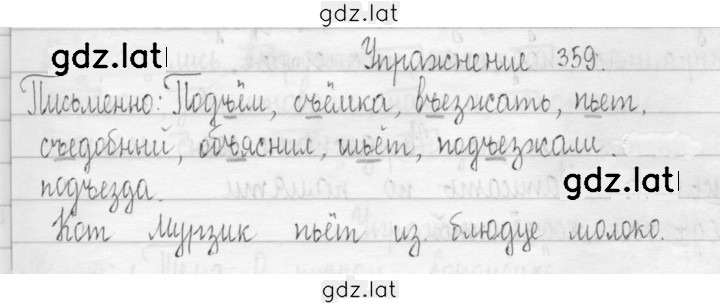 gdz.lat
gdz.lat Упражнение 359.
Письменно: Подъём, съёмка, въезжать, пьет,
съедобный, объяснил, шьёт, подъезжали
подъезда. gdz.lat
Кот Мурзик пьёт из блюдце молоко.
gdz.lat